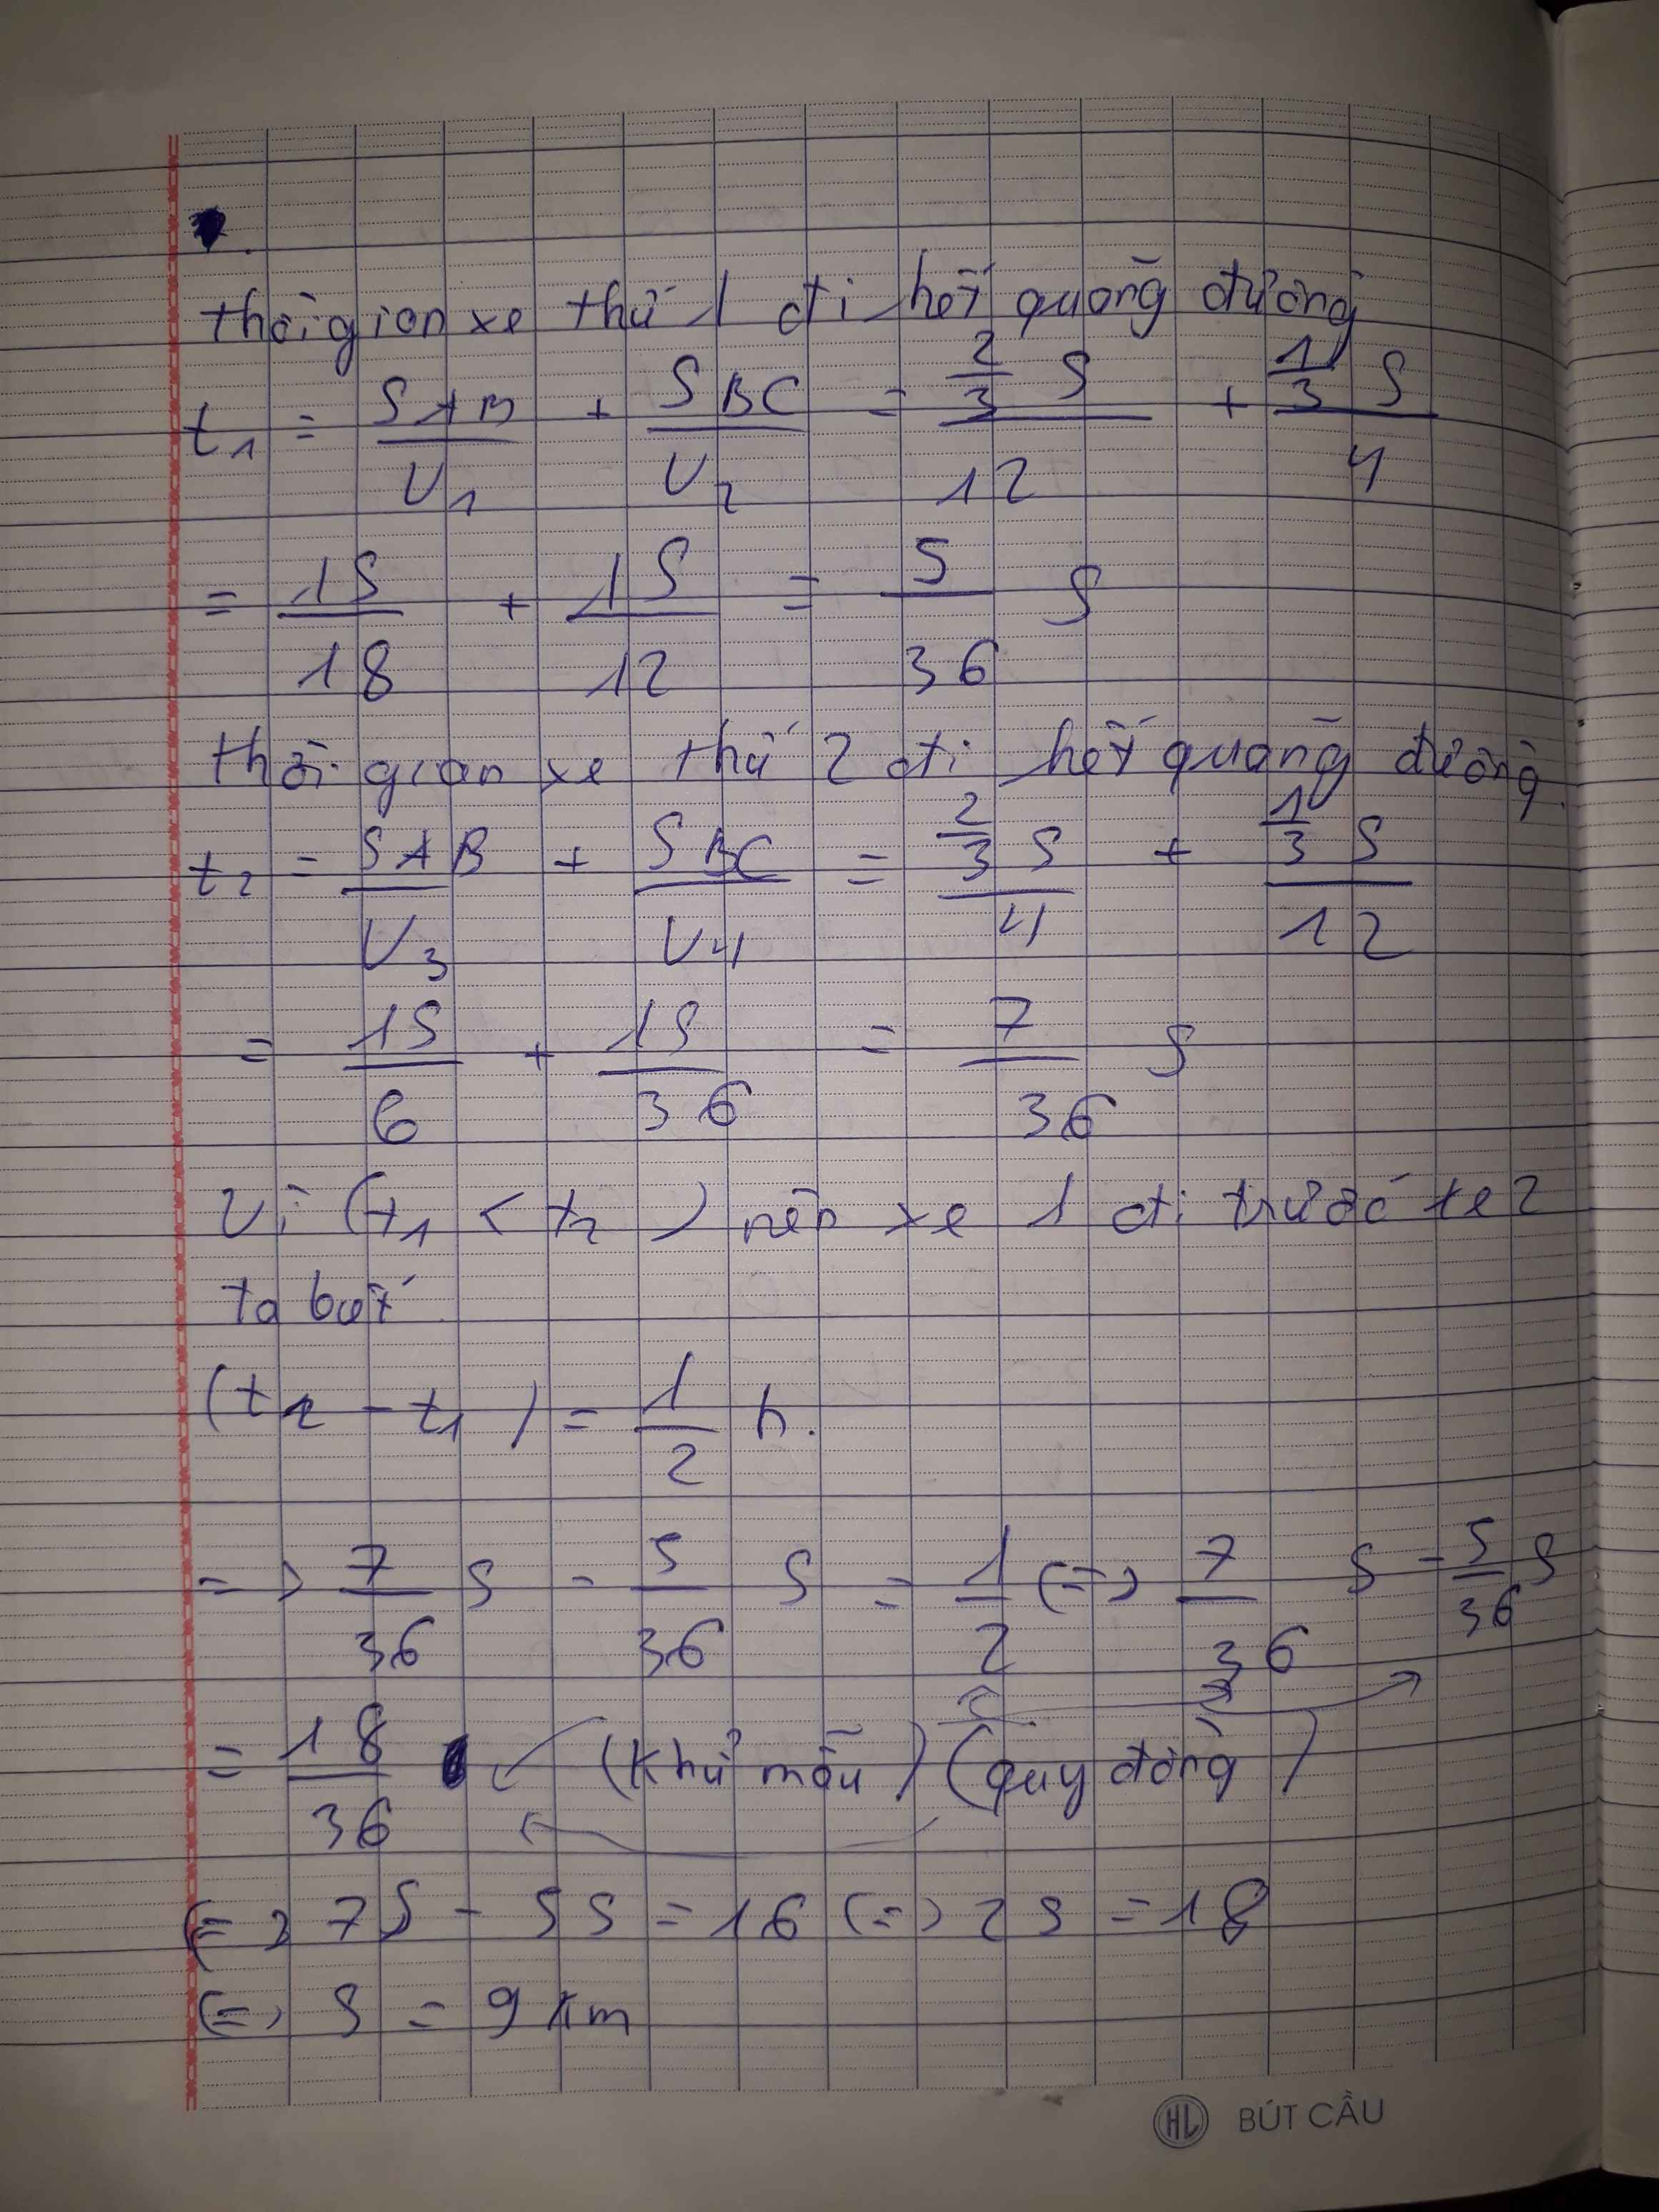 thời gian xe thứ 1 đi hết quãng đường
t₁ = SAB/V₁ + SBC/V₂ = (2/3 S)/12 + (1/3 S)/4
= 1S/18 + 1S/12 = 5/36 S
thời gian xe thứ 2 đi hết quãng đường.
t₂ = SAB/V₃ + SBC/V₄ = (2/3 S)/4 + (1/3 S)/12
= 1S/6 + 1S/36 = 7/36 S
Vì (t₁ < t₂) nên xe 1 đi trước xe 2
ta biết
(t₂ - t₁) = 1/2 h.
=> 7/36 S - 5/36 S = 1/2 <=> 7/36 S - 5/36 S
= 18/36 (khử mẫu) (quy đồng)
<=> 7S - 5S = 16 <=> 2S = 18
<=> S = 9 km
HL BÚT CẦU